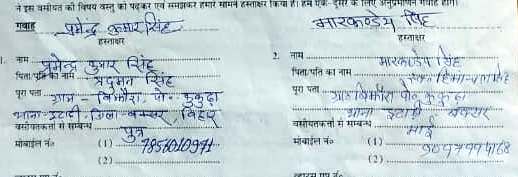 ने इस वसीयत की विषय वस्तु को पढ़कर एवं समझकर हमारे सामने हस्ताक्षर किया है। हम एक-दूसरे के लिए अनुप्रमाणन गवाह होंगे।
गवाह प्रमेन्द्र कुमार सिंह मारकण्डेय सिंह
हस्ताक्षर हस्ताक्षर
1. नाम प्रमेन्द्र कुमार सिंह
पिता/पति का नाम प्रदुमन सिंह
पूरा पता ग्राम - बिझौरा, पो॰ कुकुढ़ा
थाना-इटाढ़ी, जिला-बक्सर, बिहार
वसीयतकर्ता से सम्बन्ध पुत्र
मोबाईल नं० (1) 7856010971
(2)
2. नाम मारकण्डेय सिंह
पिता/पति का नाम
पूरा पता ग्राम बिझौरा पो॰ कुकुढ़ा
थाना इटाढ़ी बक्सर
वसीयतकर्ता से सम्बन्ध भाई
मोबाईल नं० (1)
(2)